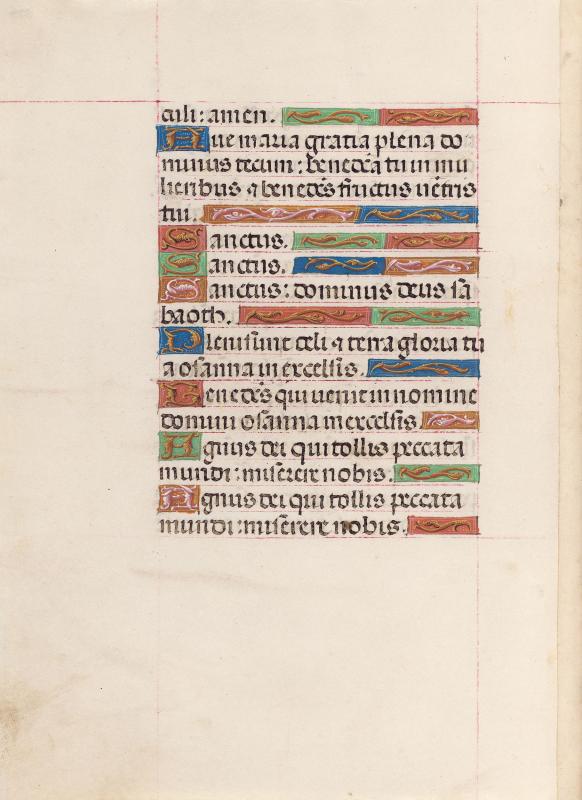 culi: amen.
Aue maria gratia plena do
minus tecum: benedc̄a tu in mu
lieribus ⁊ benedc̄s fructus uētris
tui.
Sanctus.
Sanctus.
Sanctus: dominus deus sa
baoth.
Pleni sunt celi ⁊ terra gloria tu
a osanna in excelsis.
Benedc̄s qui uenit in nomine
domini osanna in excelsis
Agnus dei qui tollis peccata
mundi: miserere nobis.
Agnus dei qui tollis peccata
mundi: misērere nobis.